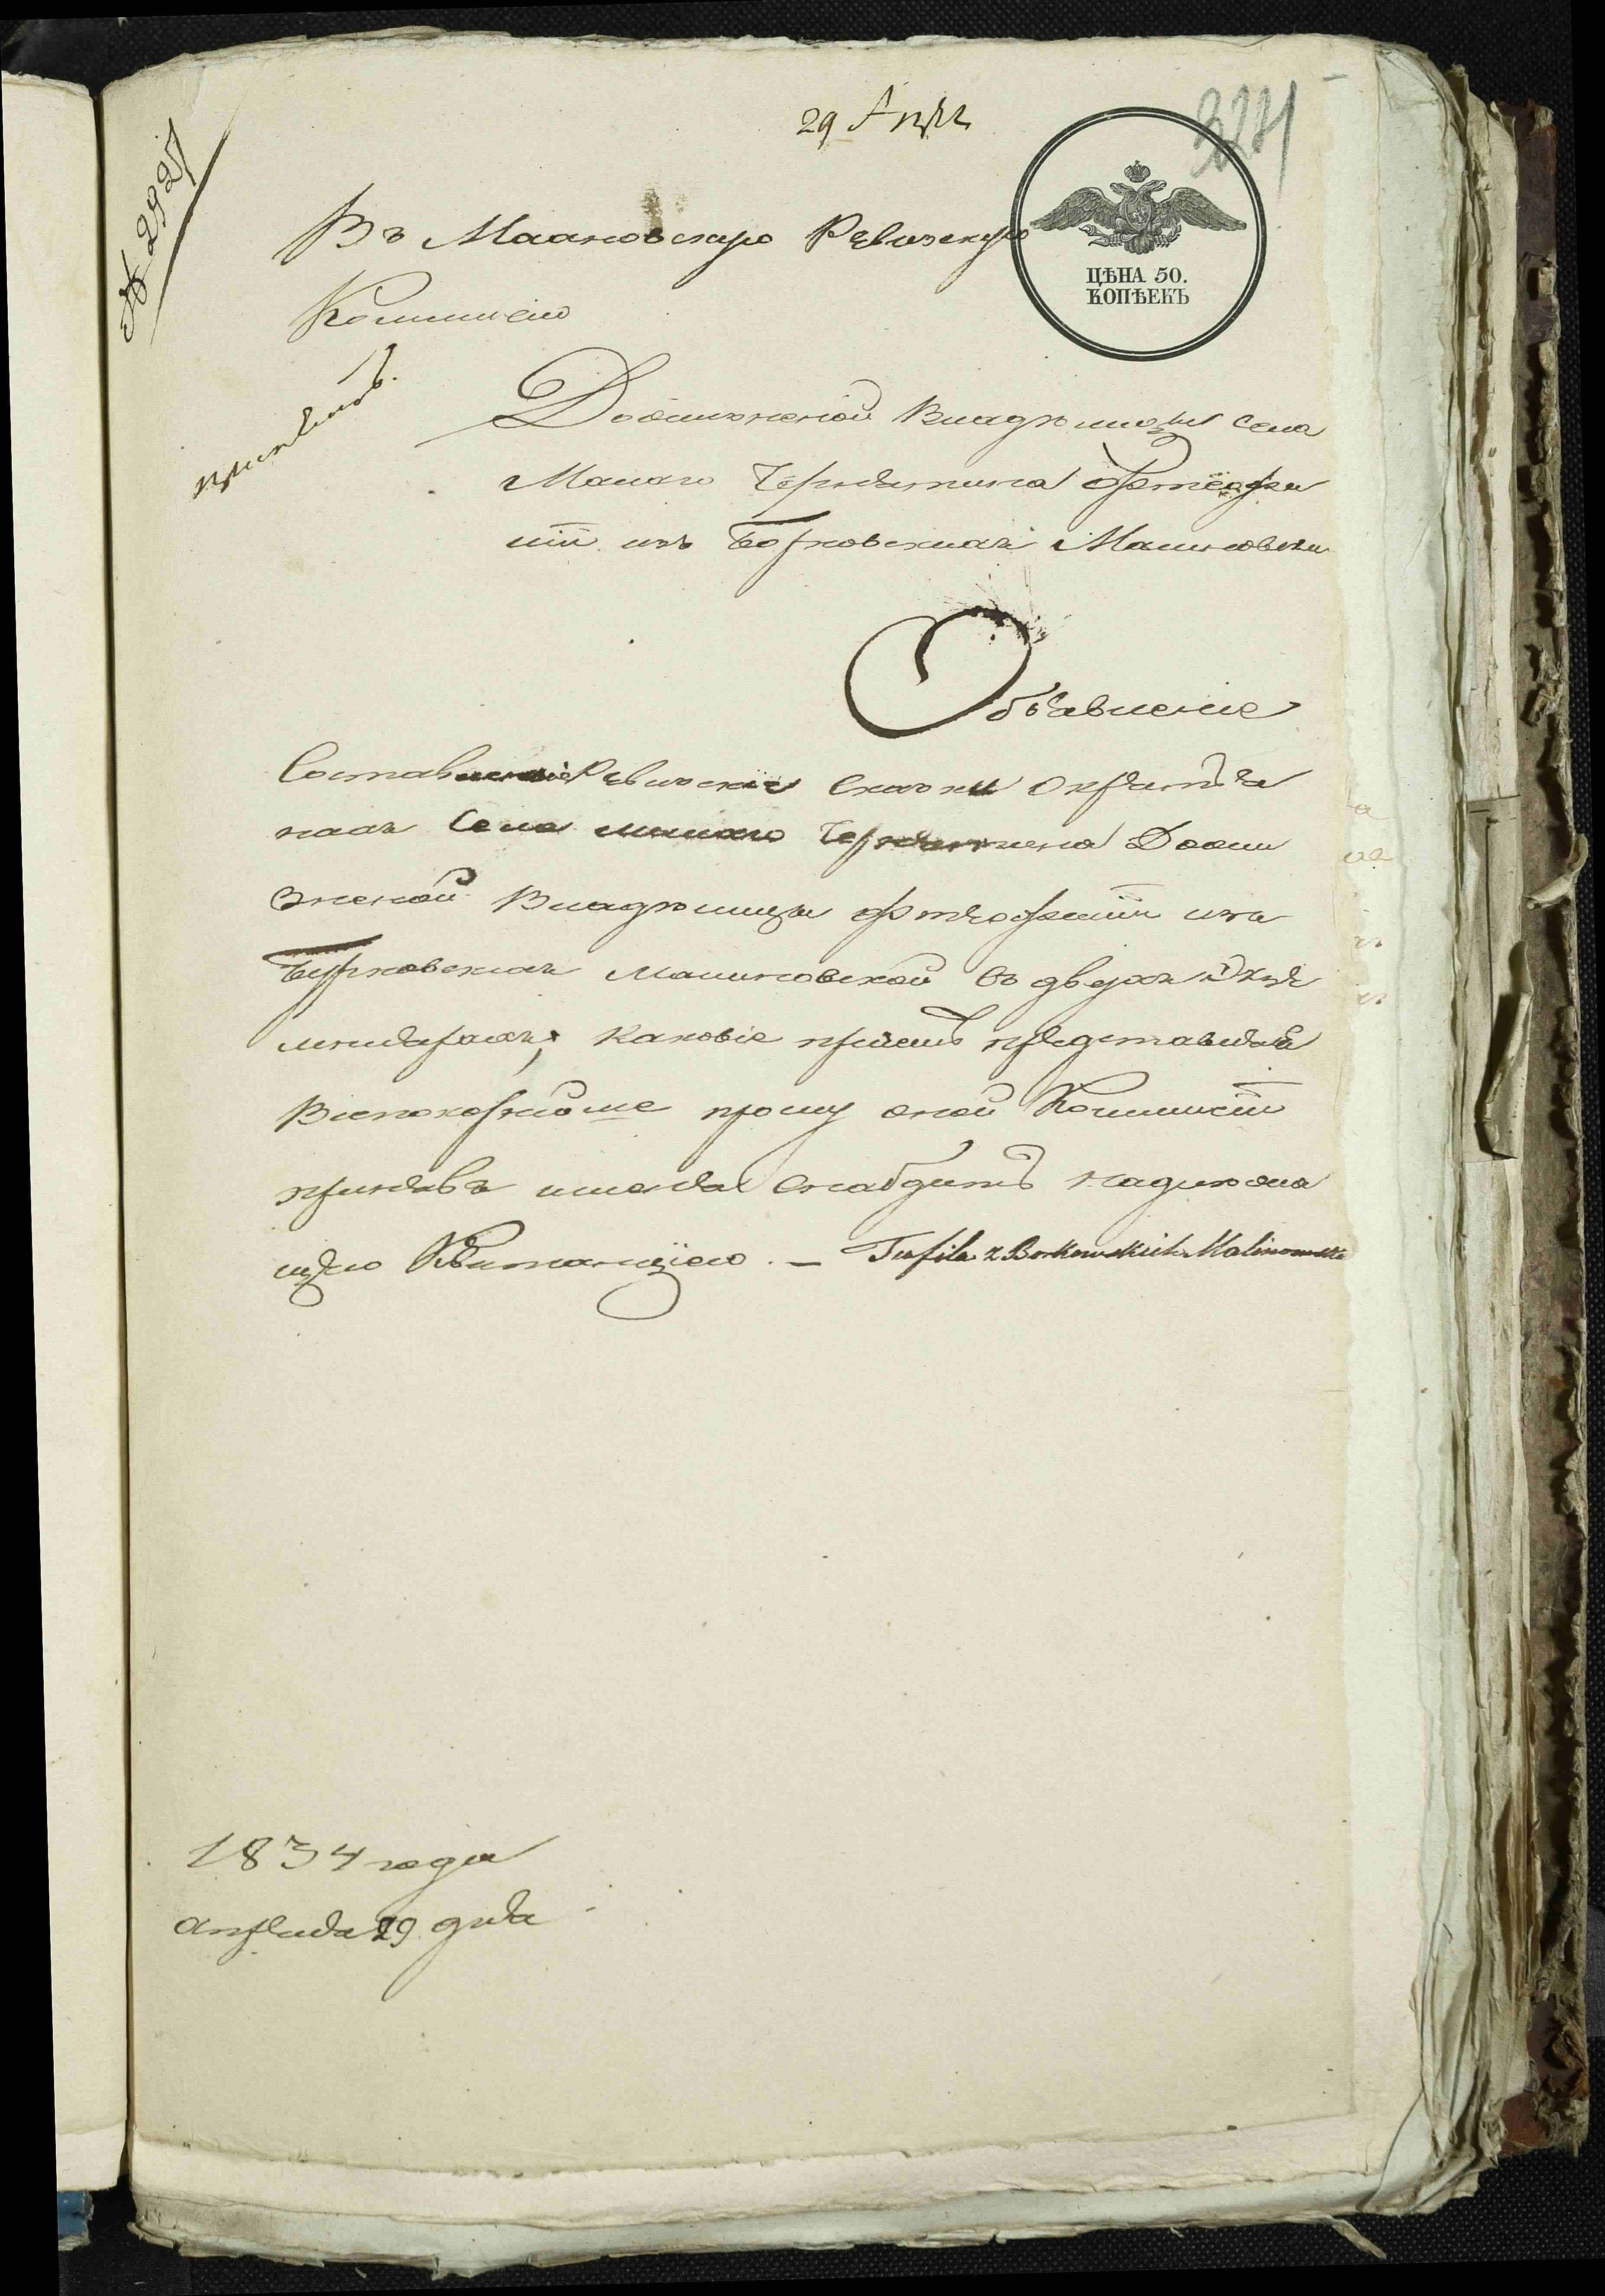 29 Апре
321
№ 2927
ЦѢНА 50.
КОПѢЕКЪ
Въ Махновскую Ревизскую
Комиссию
Доживенной Владелицы села
Малого Чернятина
из Борковских Малиновски
Объявление
Составление Ревизские сказки о крестья
нах села малого Чернятина Дожи
зненой Владелицы из
Борковских Малиновской в двух Экзе
мплярах, каковые при сем представляя
Всепокорнейше прошу оной Комиссии
приняв меня снабдить надлежа
щею Квитанциею. — Teofila z Borkowskich Malinowska
1834 года
апреля 29 дня